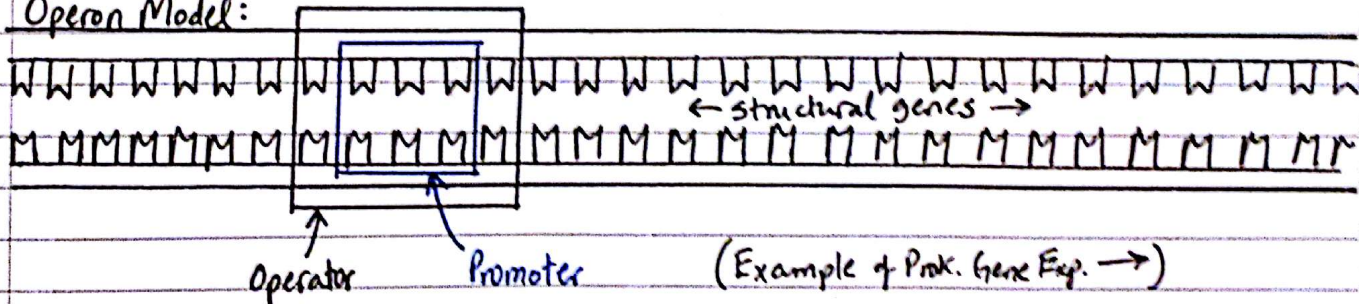 Operon Model:
← structural genes →
Operator
Promoter
(Example of Prok. Gene Exp. →)